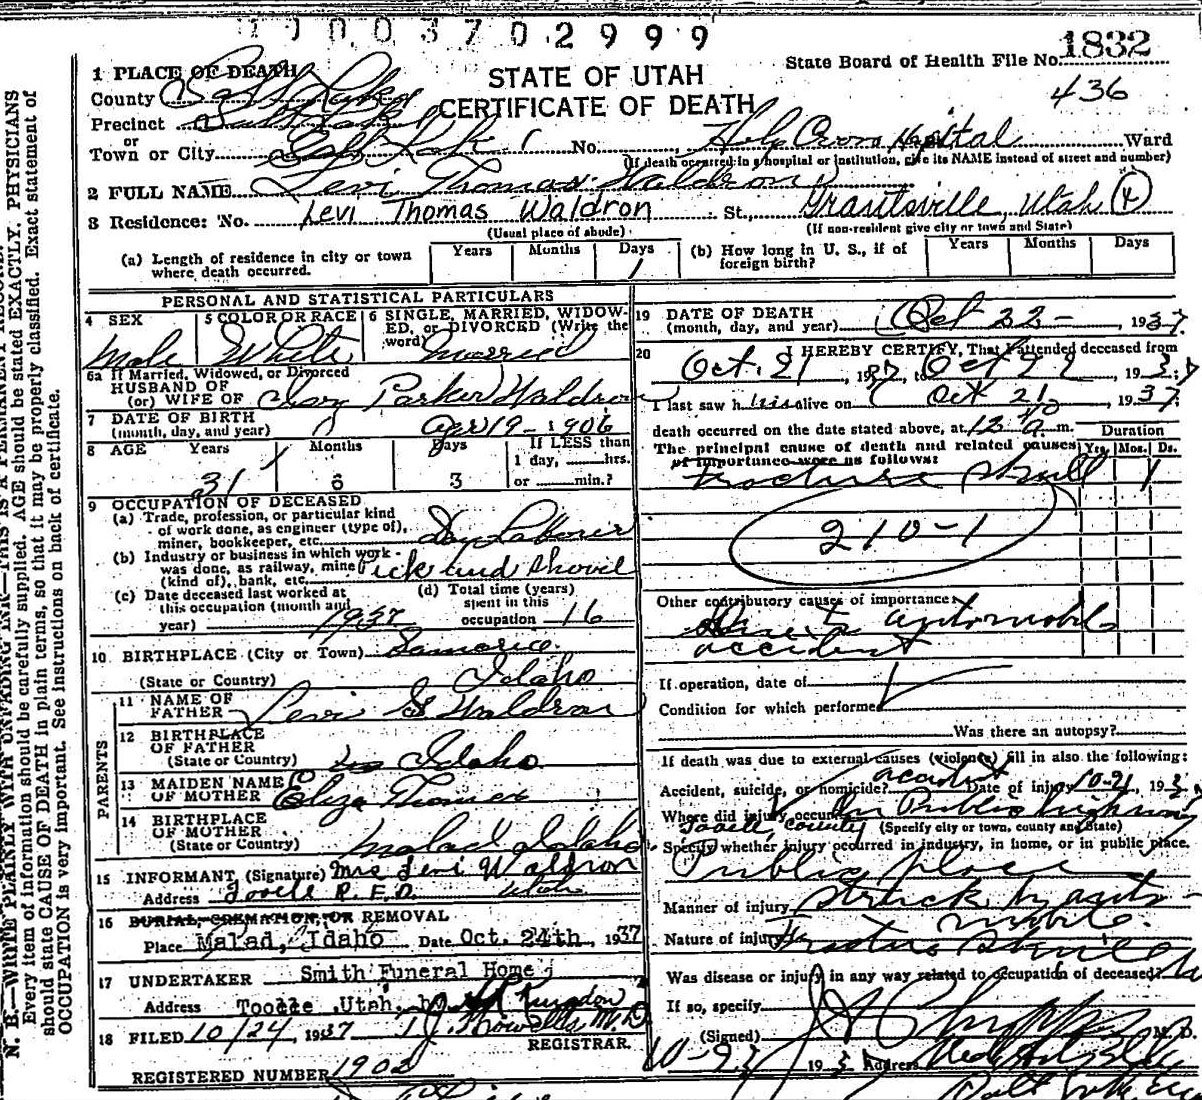 1 0 0 3 7 0 2 9 9 9
State Board of Health File No. 1832
436
STATE OF UTAH
CERTIFICATE OF DEATH
1 PLACE OF DEATH
County Salt Lake
Precinct Salt Lake
or
Town or City Salt Lake No. Holy Cross Hospital Ward
(If death occurred in a hospital or institution, give its NAME instead of street and number)
2 FULL NAME Levi Thomas Waldron
3 Residence: No. Levi Thomas Waldron St., Grantsville, Utah (4)
(Usual place of abode) (If non-resident give city or town and State)
(a) Length of residence in city or town where death occurred. Years Months Days 1
(b) How long in U. S., if of foreign birth? Years Months Days
PERSONAL AND STATISTICAL PARTICULARS
4 SEX Male
5 COLOR OR RACE White
6 SINGLE, MARRIED, WIDOWED, or DIVORCED (Write the word) married
6a If Married, Widowed, or Divorced
HUSBAND OF
(or) WIFE OF Parker Waldron
7 DATE OF BIRTH
(month, day, and year) Apr 19-1906
8 AGE Years 31 Months 6 Days 3 If LESS than 1 day, hrs. or min.?
9 OCCUPATION OF DECEASED
(a) Trade, profession, or particular kind
of work done, as engineer (type of),
miner, bookkeeper, etc. Day Laborer
(b) Industry or business in which work
was done, as railway, mine
(kind of), bank, etc. Pick and Shovel
(c) Date deceased last worked at
this occupation (month and
year) 1937
(d) Total time (years)
spent in this
occupation 16
10 BIRTHPLACE (City or Town) Samaria
(State or Country) Idaho
PARENTS
11 NAME OF FATHER Levi G Waldron
12 BIRTHPLACE OF FATHER
(State or Country) Idaho
13 MAIDEN NAME OF MOTHER Eliza Thomas
14 BIRTHPLACE OF MOTHER
(State or Country) Malad Idaho
15 INFORMANT (Signature) Mrs Levi Waldron
Address Tooele R.F.D. Utah
16 BURIAL, CREMATION, OR REMOVAL
Place Malad, Idaho Date Oct. 24th, 1937
17 UNDERTAKER Smith Funeral Home
Address Tooele, Utah, by
18 FILED 10/24, 1937 M.D.
REGISTRAR.
REGISTERED NUMBER 1902
19 DATE OF DEATH
(month, day, and year) Oct 22- , 1937
20 I HEREBY CERTIFY, That I attended deceased from
Oct. 21, 1937, to Oct 22, 1937
I last saw him alive on Oct 21, 1937
death occurred on the date stated above, at 12 a. m.
The principal cause of death and related causes
of importance were as follows: Duration Yrs. Mos. Ds.
Fracture Skull 1
210-1
Other contributory causes of importance:
Due to automobile
accident
If operation, date of
Condition for which performed
Was there an autopsy?
If death was due to external causes (violence) fill in also the following:
Accident, suicide, or homicide? accident Date of injury 10-21, 193
Where did injury occur? On Public highway
Tooele, County (Specify city or town, county and State)
Specify whether injury occurred in industry, in home, or in public place.
Public place
Manner of injury Struck by auto-
mobile.
Nature of injury Fracture Skull
Was disease or injury in any way related to occupation of deceased?
If so, specify
(Signed) M. D.
193 Address
N. B.—WRITE PLAINLY, WITH UNFADING INK—THIS IS A PERMANENT RECORD.
Every item of information should be carefully supplied. AGE should be stated EXACTLY. PHYSICIANS
should state CAUSE OF DEATH in plain terms, so that it may be properly classified. Exact statement of
OCCUPATION is very important. See instructions on back of certificate.